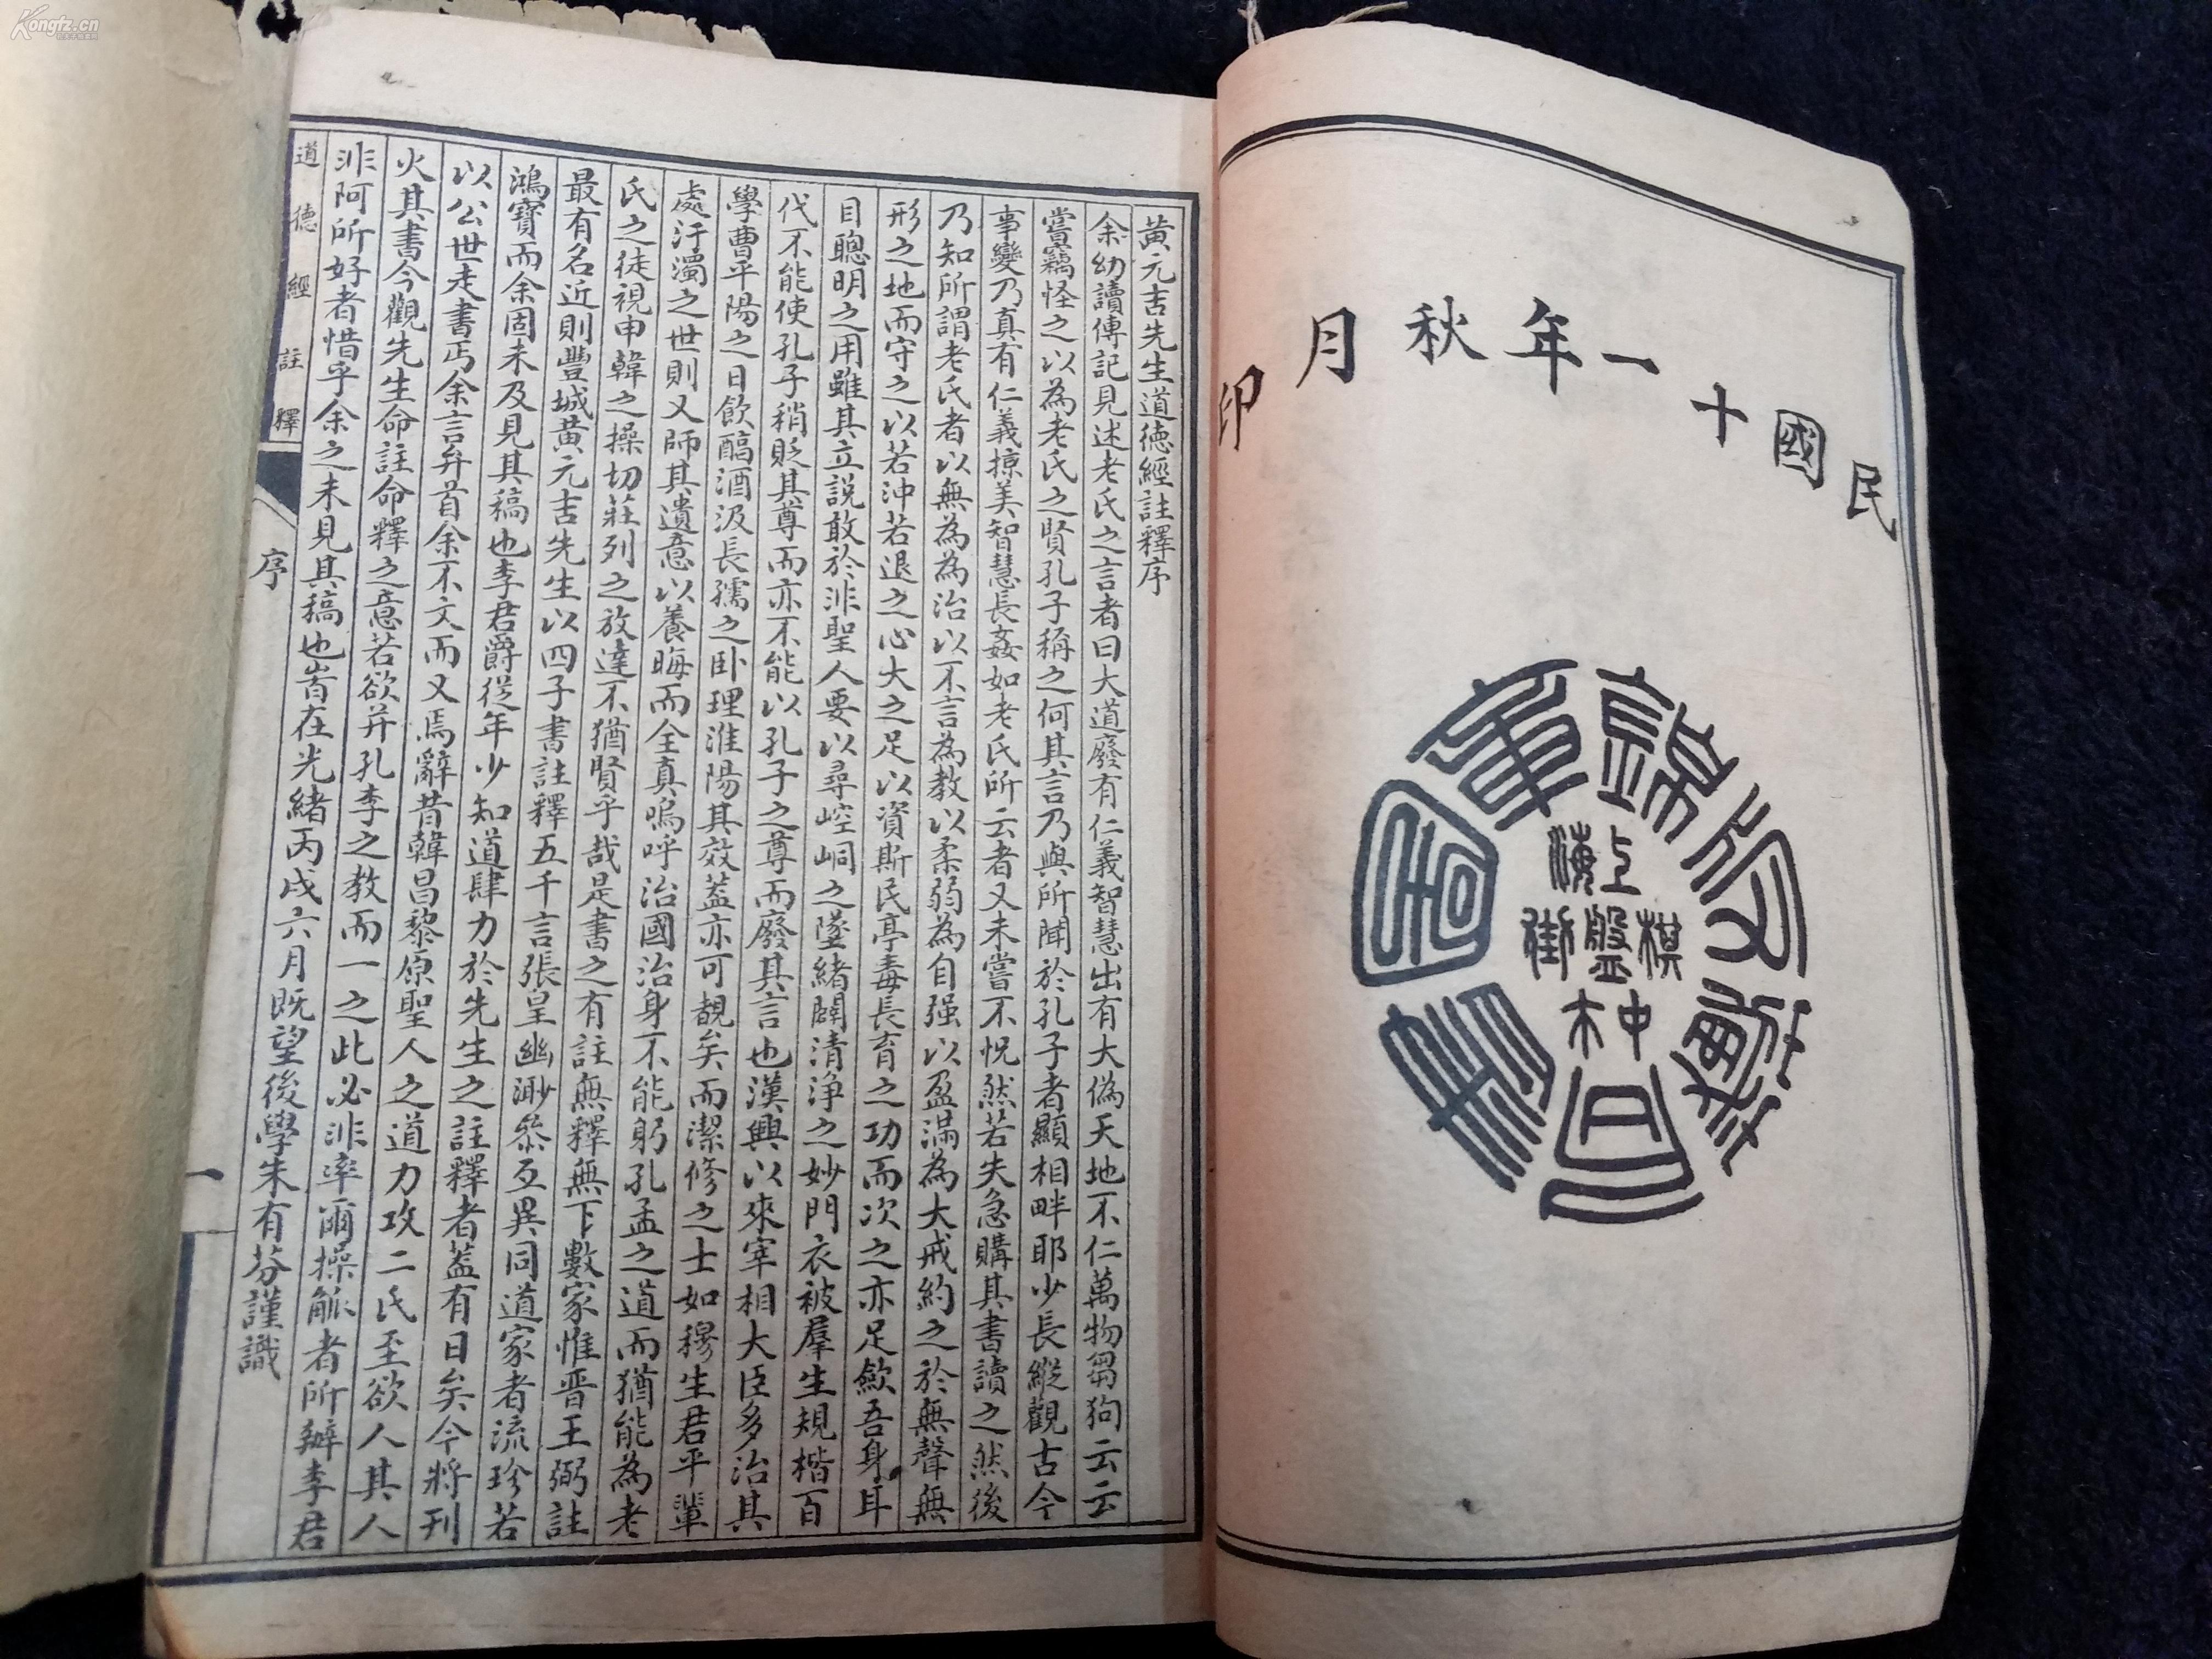 Kongfz.cn
民國十一年秋月印
上海
棋盤街
中
黃元吉先生道德經註釋序
余幼讀傳記見述老氏之言者曰大道廢有仁義智慧出有大偽天地不仁萬物芻狗云云
嘗竊怪之以為老氏之賢孔子稱之何其言乃與所聞於孔子者顯相畔耶少長縱觀古今
事變乃真有仁義掠美智慧長姦如老氏所云者又未嘗不怳然若失急購其書讀之然後
乃知所謂老氏者以無為為治以不言為教以柔弱為自强以盈滿為大戒約之於無聲無
形之地而守之以若沖若退之心大之足以資斯民亭毒長育之功而次之亦足斂吾身耳
目聰明之用雖其立說敢於非聖人要以尋崆峒之墜緒闢清淨之妙門衣被羣生規楷百
代不能使孔子稍貶其尊而亦不能以孔子之尊而廢其言也漢興以來宰相大臣多治其
學曹平陽之日飲醇酒汲長孺之卧理淮陽其效蓋亦可覩矣而潔修之士如穆生君平輩
處汙濁之世則又師其遺意以養晦而全真嗚呼治國治身不能躬孔孟之道而猶能為老
氏之徒視申韓之操切莊列之放達不猶賢乎哉是書之有註無釋無下數家惟晋王弼註
最有名近則豐城黃元吉先生以四子書註釋五千言張皇幽渺叅互異同道家者流珍若
鴻寶而余固未及見其稿也李君爵從年少知道肆力於先生之註釋者蓋有日矣今將刊
以公世走書丐余言弁首余不文而又焉辭昔韓昌黎原聖人之道力攻二氏至欲人其人
火其書今觀先生命註命釋之意若欲并孔李之教而一之此必非率爾操觚者所辦李君
非阿所好者惜乎余之未見其稿也旹在光緒丙戌六月既望後學朱有芬謹識
道德經註釋
序
一